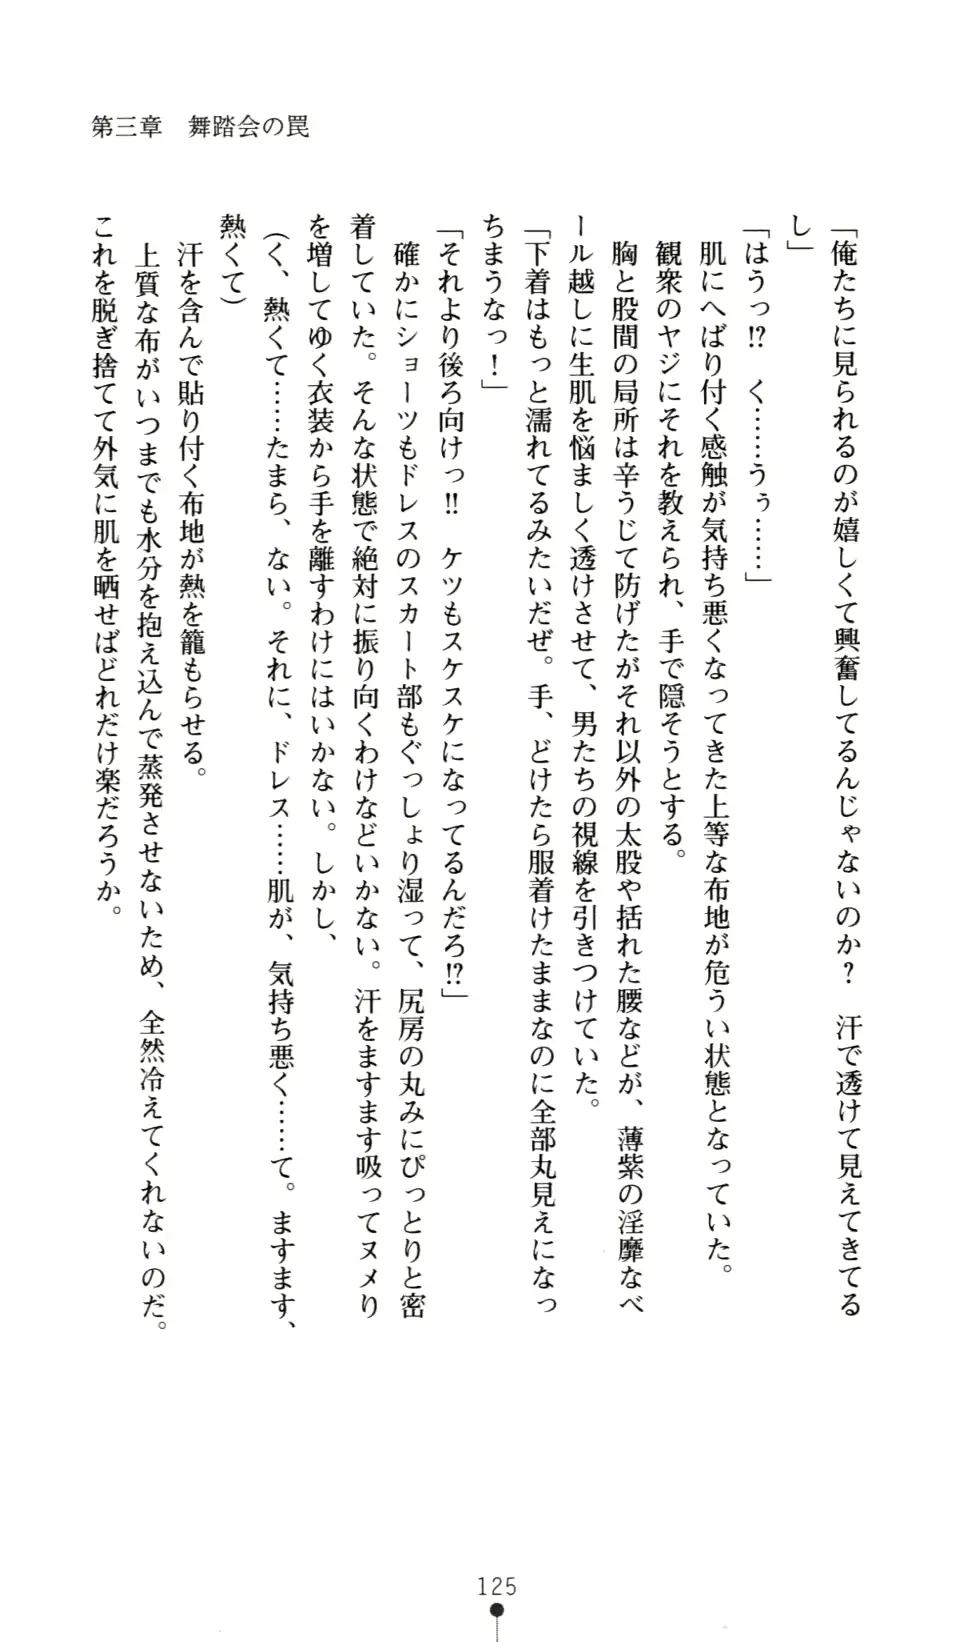 第三章　舞踏会の罠
「俺たちに見られるのが嬉しくて興奮してるんじゃないのか？　汗で透けて見えてきてる
し」
「はうっ!?　く……うぅ……」
　肌にへばり付く感触が気持ち悪くなってきた上等な布地が危うい状態となっていた。
　観衆のヤジにそれを教えられ、手で隠そうとする。
　胸と股間の局所は辛うじて防げたがそれ以外の太股や括れた腰などが、薄紫の淫靡なベ
ール越しに生肌を悩ましく透けさせて、男たちの視線を引きつけていた。
「下着はもっと濡れてるみたいだぜ。手、どけたら服着けたままなのに全部丸見えになっ
ちまうなっ！」
「それより後ろ向けっ!!　ケツもスケスケになってるんだろ!?」
　確かにショーツもドレスのスカート部もぐっしょり湿って、尻房の丸みにぴっとりと密
着していた。そんな状態で絶対に振り向くわけなどいかない。汗をますます吸ってヌメり
を増してゆく衣装から手を離すわけにはいかない。しかし、
（く、熱くて……たまら、ない。それに、ドレス……肌が、気持ち悪く……て。ますます、
熱くて）
　汗を含んで貼り付く布地が熱を籠もらせる。
　上質な布がいつまでも水分を抱え込んで蒸発させないため、全然冷えてくれないのだ。
これを脱ぎ捨てて外気に肌を晒せばどれだけ楽だろうか。
125